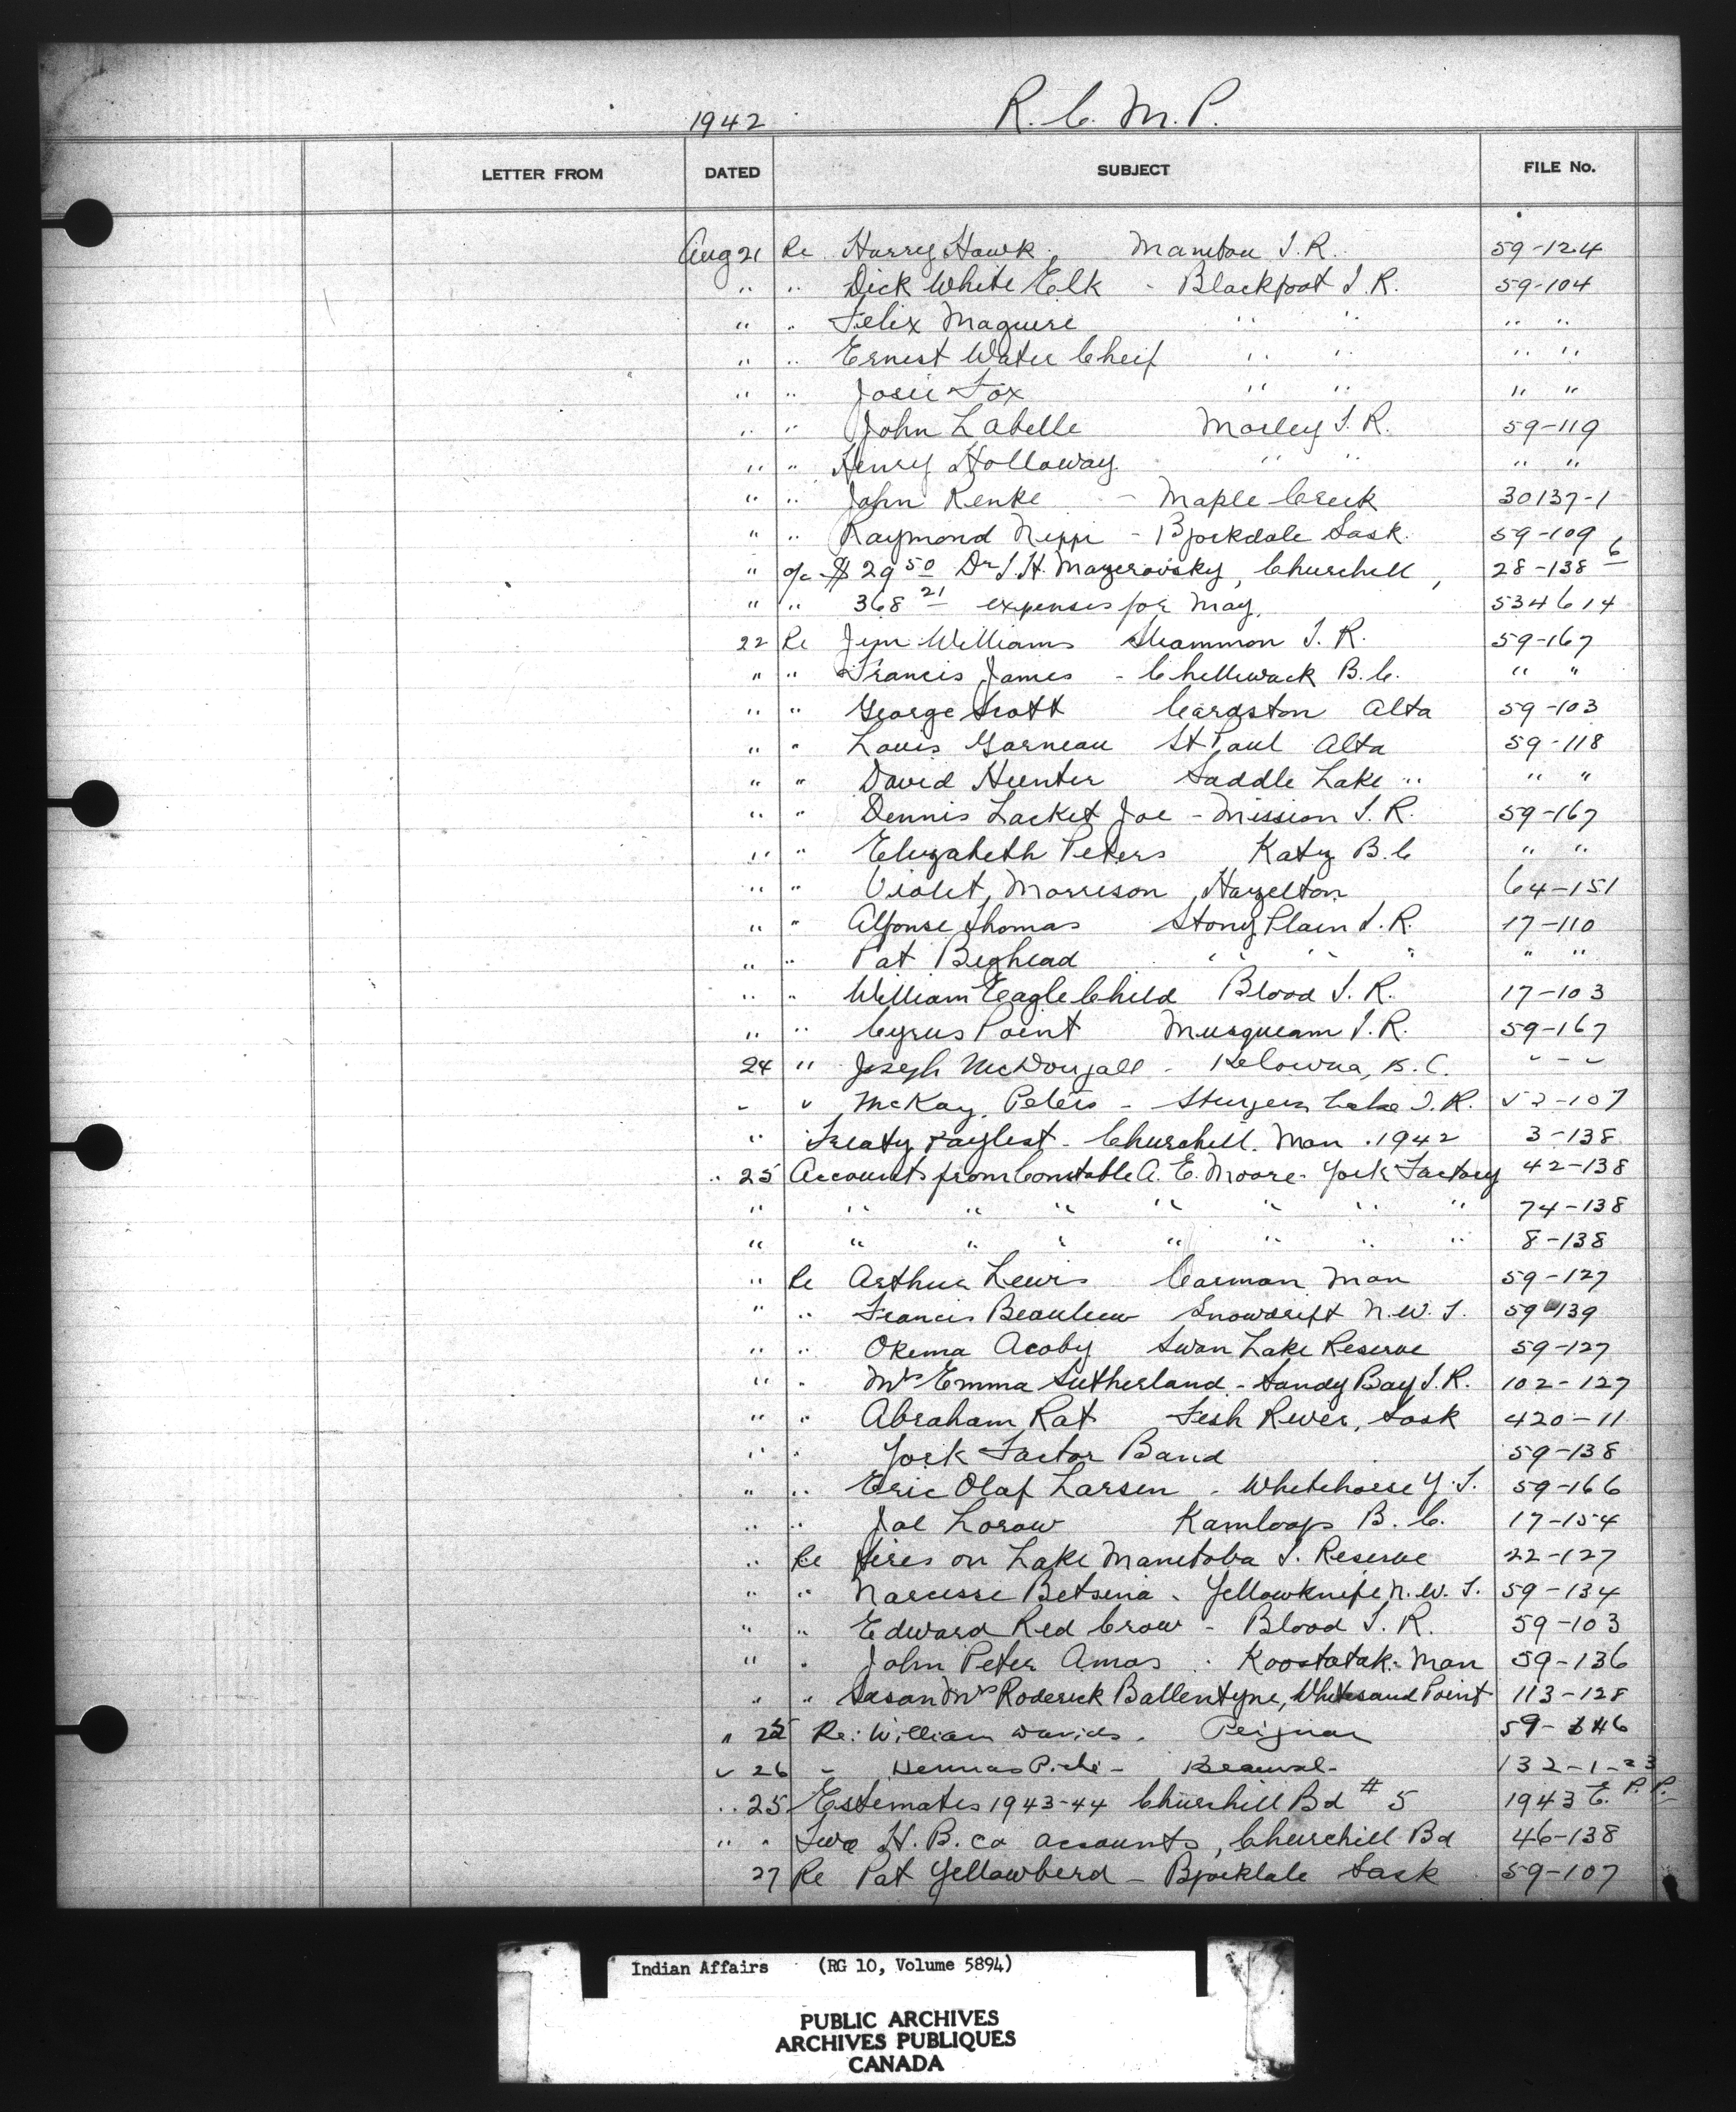 1942 R. C. M. P.
LETTER FROM DATED SUBJECT FILE No.
Aug 21 Re Harry Hawk, Manitou I.R. 59-124
" " Dick White Elk - Blackfoot I.R. 59-104
" " Felix Maguire " " " "
" " Ernest Water Cheif " " " "
" " Josie Fox " " " "
" " John Labelle Morley I.R. 59-119
" " Henry Holloway " " " "
" " John Renke - Maple Creek 30137-1
" " Raymond Neppi - Bjorkdale Sask. 59-109
" a/c $29 50 Dr I.H. Mazerovsky, Churchill, 28-138 6
" " 368 21 expenses for May. 534614
22 Re Jim Williams Sliammon I.R. 59-167
" " Francis James - Chilliwack B.C. " "
" " George Scott Cardston Alta 59-103
" " Louis Garneau St Paul Alta 59-118
" " David Hunter Saddle Lake " " "
" " Dennis Lacket Joe - Mission I.R. 59-167
" " Elizabeth Peters Katz B.C " "
" " Violet Morrison Hazelton 64-151
" " Alfonse Thomas Stony Plain I.R. 17-110
" " Pat Bighead " " " " "
" " William Eagle Child Blood I.R. 17-103
" " Cyrus Point Musqueam I.R. 59-167
24 " Joseph McDougall - Kelowna, B.C. " - "
" " McKay, Peters - Sturgeon Lake I.R. 52-107
" Treaty Paylist - Churchill. Man. 1942 3-138
" 25 Accounts from Constable A. E. Moore - York Factory 42-138
" " " " " " " " 74-138
" " " " " " " " 8-138
" Re Arthur Lewis Carman Man 59-127
" " Francis Beaulieu Snowdrift N.W.T. 59-139
" " Okema Acoby Swan Lake Reserve 59-127
" " Mrs Emma Sutherland - Sandy Bay I.R. 102-127
" " Abraham Rat Fish River, Sask 420-11
" " York Factor Band 59-138
" " Eric Olaf Larsen - Whitehorse Y.T. 59-166
" " Joe Lorow Kamloops B.C. 17-154
" Re Fires on Lake Manitoba I. Reserve 22-127
" " Narcisse Betsina - Yellowknife N.W.T. 59-134
" " Edward Red Crow - Blood I.R. 59-103
" " John Peter Amos - Koostatak - Man 59-136
" " Susan Mrs Roderick Ballentyne, Whitesand Point 113-128
" 25 Re: William Davids. 59-146
" 26 " - 132-1-23
" 25 Estimates 1943-44 Churchill Bd # 5 1943 E. P.P.
" " Two H.B. co accounts, Churchill Bd 46-138
27 Re Pat Yellowbird - Bjorkdale Sask 59-107
Indian Affairs (RG 10, Volume 5894)
PUBLIC ARCHIVES
ARCHIVES PUBLIQUES
CANADA